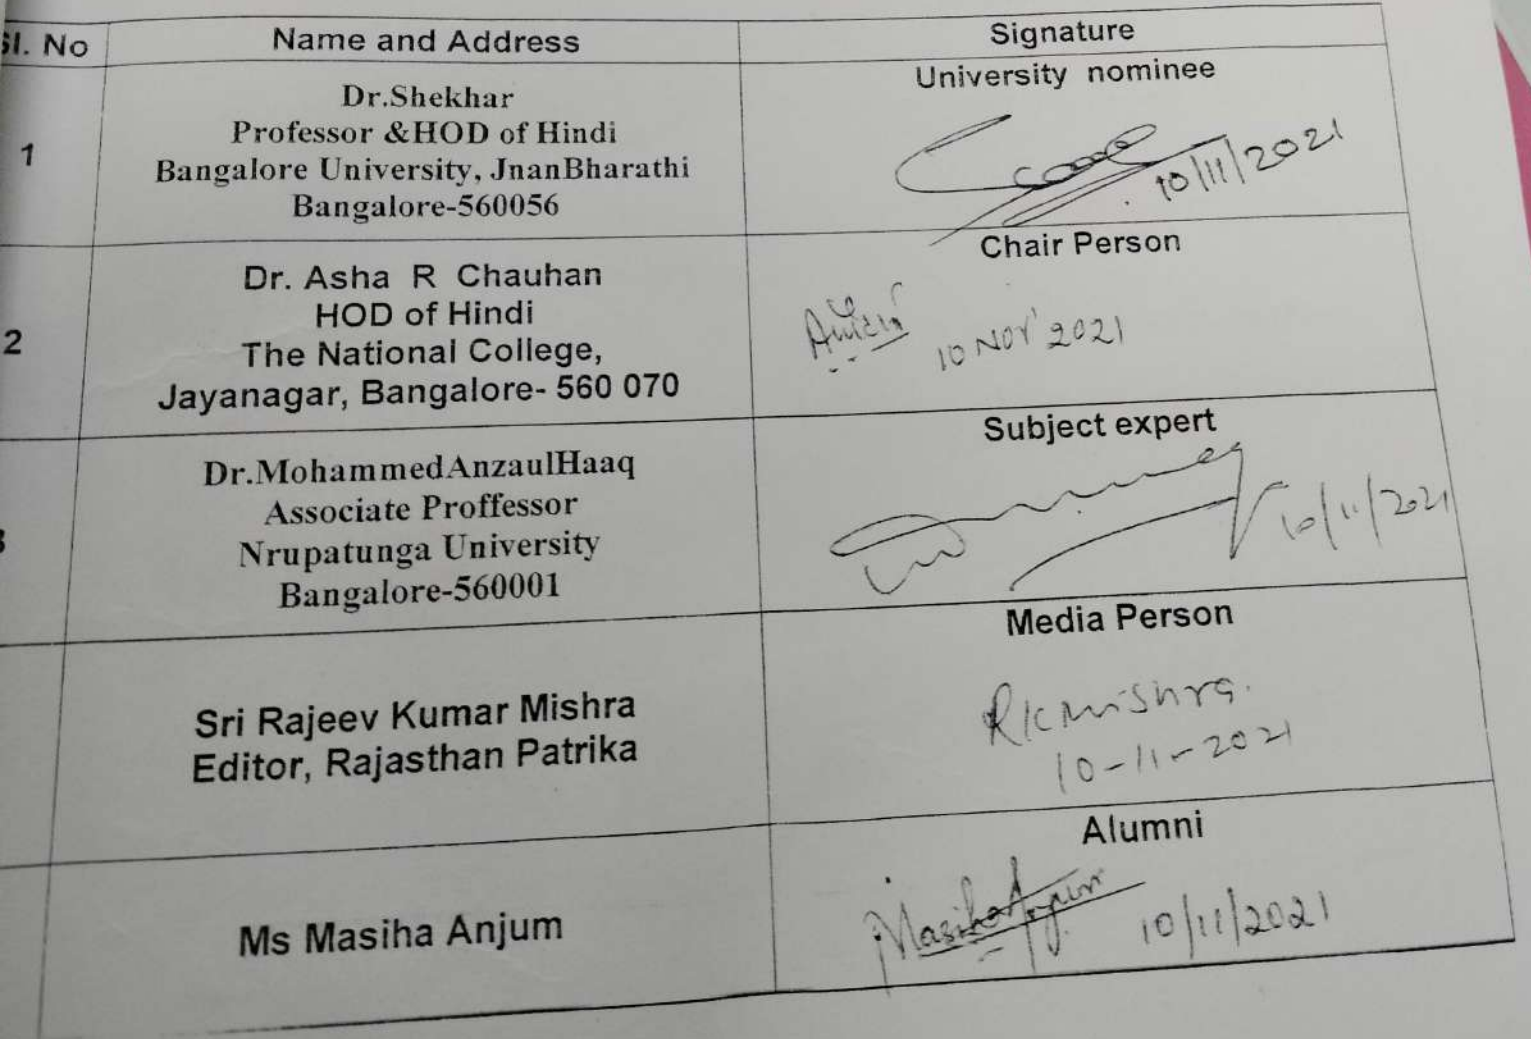 Sl. No Name and Address Signature
1
Dr.Shekhar
Professor &HOD of Hindi
Bangalore University, JnanBharathi
Bangalore-560056
University nominee
10/11/2021
2
Dr. Asha R Chauhan
HOD of Hindi
The National College,
Jayanagar, Bangalore- 560 070
Chair Person
10 Nov' 2021
3
Dr.MohammedAnzaulHaaq
Associate Proffessor
Nrupatunga University
Bangalore-560001
Subject expert
10/11/2021
Sri Rajeev Kumar Mishra
Editor, Rajasthan Patrika
Media Person
RKMishra.
10-11-2021
Ms Masiha Anjum
Alumni
Masiha Anjum 10/11/2021